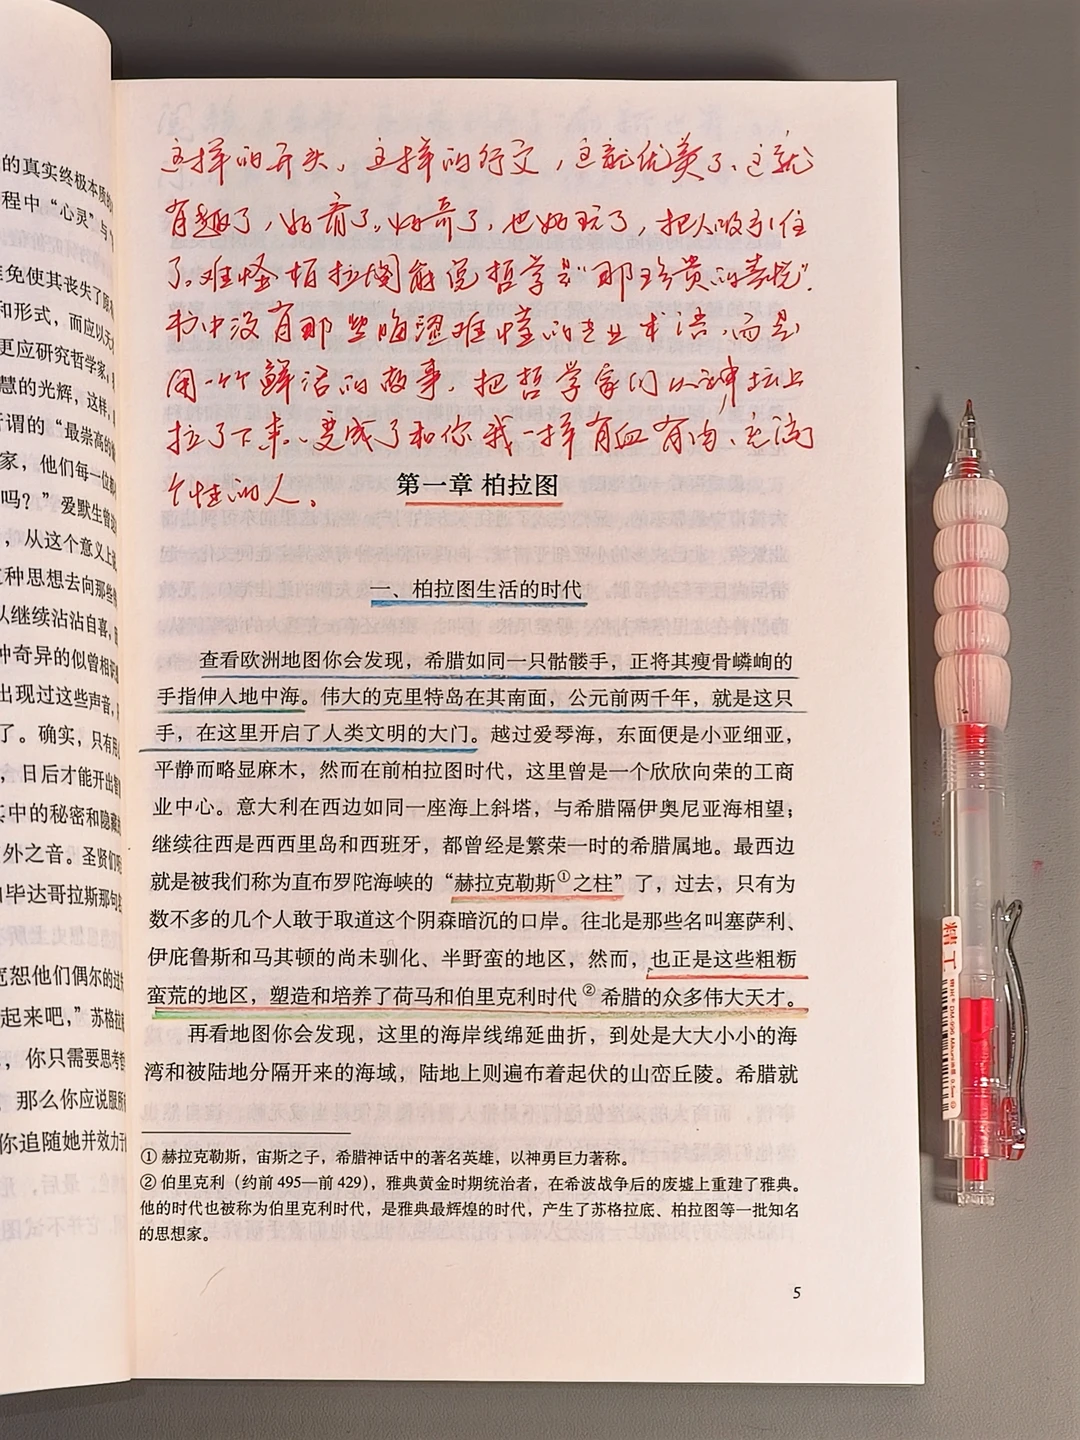 的真实终极本质的
程中“心灵”与“
免使其丧失了原
和形式，而应以
更应研究哲学家，
慧的光辉，这样，
所谓的“最崇高的
家，他们每一位都
吗？”爱默生曾
，从这个意义上
这种思想去向那些
以继续沾沾自喜，
种奇异的似曾相
出现过这些声音，
了。确实，只有
，日后才能开出
其中的秘密和隐藏
外之音。圣贤们
和毕达哥拉斯那句
宽恕他们偶尔的
起来吧，”苏格拉
，你只需要思考
，那么你应说服所
你追随她并效力于
这样的开头，这样的行文，这就优美了、这就
有趣了，好看了，好奇了，也好玩了，把人吸引住
了。难怪柏拉图能说哲学是“那珍贵的喜悦”。
书中没有那些晦涩难懂的专业术语，而是
用一个个鲜活的故事，把哲学家们从神坛上
拉了下来、变成了和你我一样有血有肉、充满
个性的人。
第一章 柏拉图
一、柏拉图生活的时代
查看欧洲地图你会发现，希腊如同一只骷髅手，正将其瘦骨嶙峋的
手指伸入地中海。伟大的克里特岛在其南面，公元前两千年，就是这只
手，在这里开启了人类文明的大门。越过爱琴海，东面便是小亚细亚，
平静而略显麻木，然而在前柏拉图时代，这里曾是一个欣欣向荣的工商
业中心。意大利在西边如同一座海上斜塔，与希腊隔伊奥尼亚海相望；
继续往西是西西里岛和西班牙，都曾经是繁荣一时的希腊属地。最西边
就是被我们称为直布罗陀海峡的“赫拉克勒斯①之柱”了，过去，只有为
数不多的几个人敢于取道这个阴森暗沉的口岸。往北是那些名叫塞萨利、
伊庇鲁斯和马其顿的尚未驯化、半野蛮的地区，然而，也正是这些粗粝
蛮荒的地区，塑造和培养了荷马和伯里克利时代②希腊的众多伟大天才。
再看地图你会发现，这里的海岸线绵延曲折，到处是大大小小的海
湾和被陆地分隔开来的海域，陆地上则遍布着起伏的山峦丘陵。希腊就
① 赫拉克勒斯，宙斯之子，希腊神话中的著名英雄，以神勇巨力著称。
② 伯里克利（约前495—前429），雅典黄金时期统治者，在希波战争后的废墟上重建了雅典。
他的时代也被称为伯里克利时代，是雅典最辉煌的时代，产生了苏格拉底、柏拉图等一批知名
的思想家。
5
精工